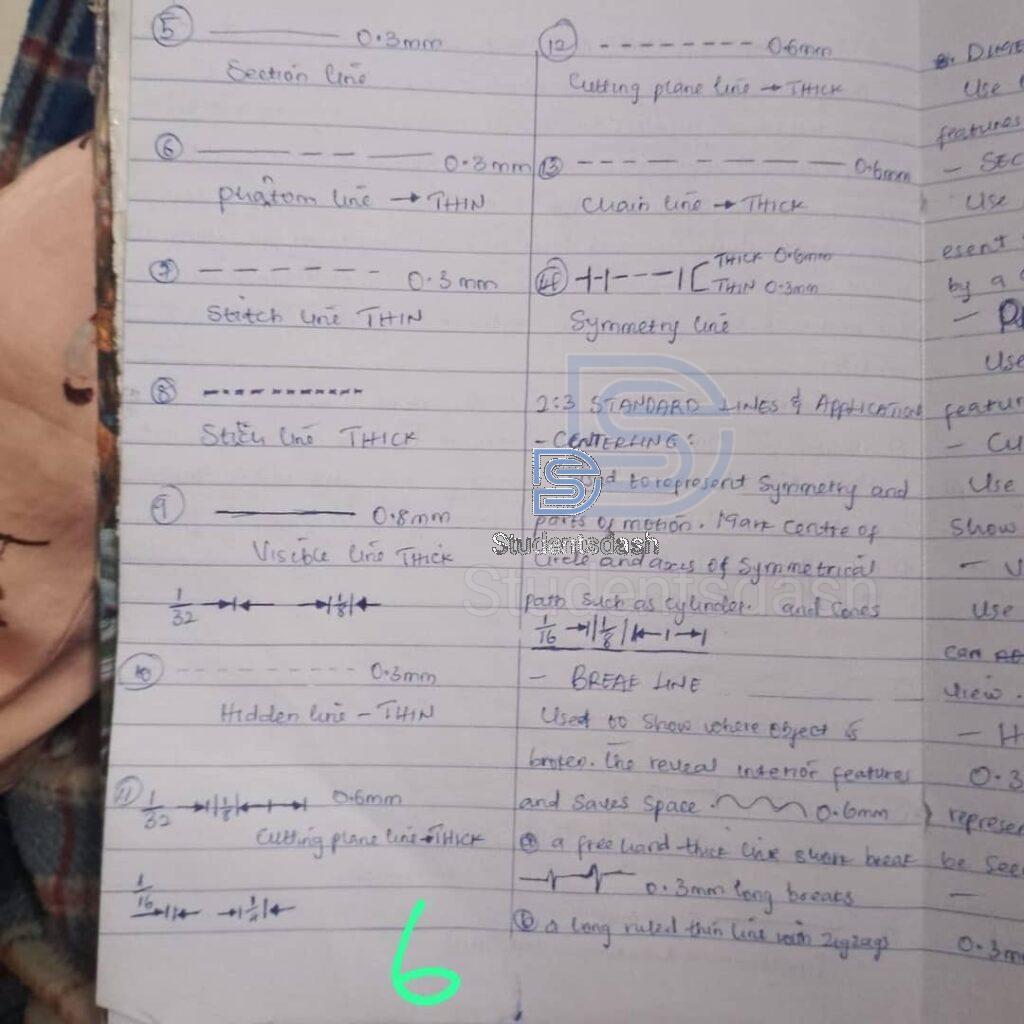 5 0.3mm
Section line
6 0.3mm
phantom line → THIN
7 0.3mm
Stitch line THIN
8
Stitch line THICK
9 0.8mm
Visible line THICK
1/32 1/8
10 0.3mm
Hidden line - THIN
11 1/32 1/8 0.6mm
Cutting plane line → THICK
1/16 1/4
6
12 0.6mm
Cutting plane line → THICK
13 0.6mm
Chain line → THICK
14 THICK 0.6mm
THIN 0.3mm
Symmetry line
2:3 STANDARD LINES & APPLICATION
- CENTERLINE:
to represent Symmetry and
parts of motion. Mark centre of
Circle and axes of Symmetrical
path such as cylinder. and Cones
1/16 1/8
- BREAK LINE
Used to show where object is
broken. The reveal interior features
and saves space. 0.6mm
a a free hand thick line short break
0.3mm long breaks
b a long ruled thin line with zigzags
Use
features
- SEC
Use
esent
by a
-
Use
featur
- Cu
Use
show
- V
Use
can
view.
- H
0.3
represen
be see
-
0.3m
Studentsdash
Studentsdash